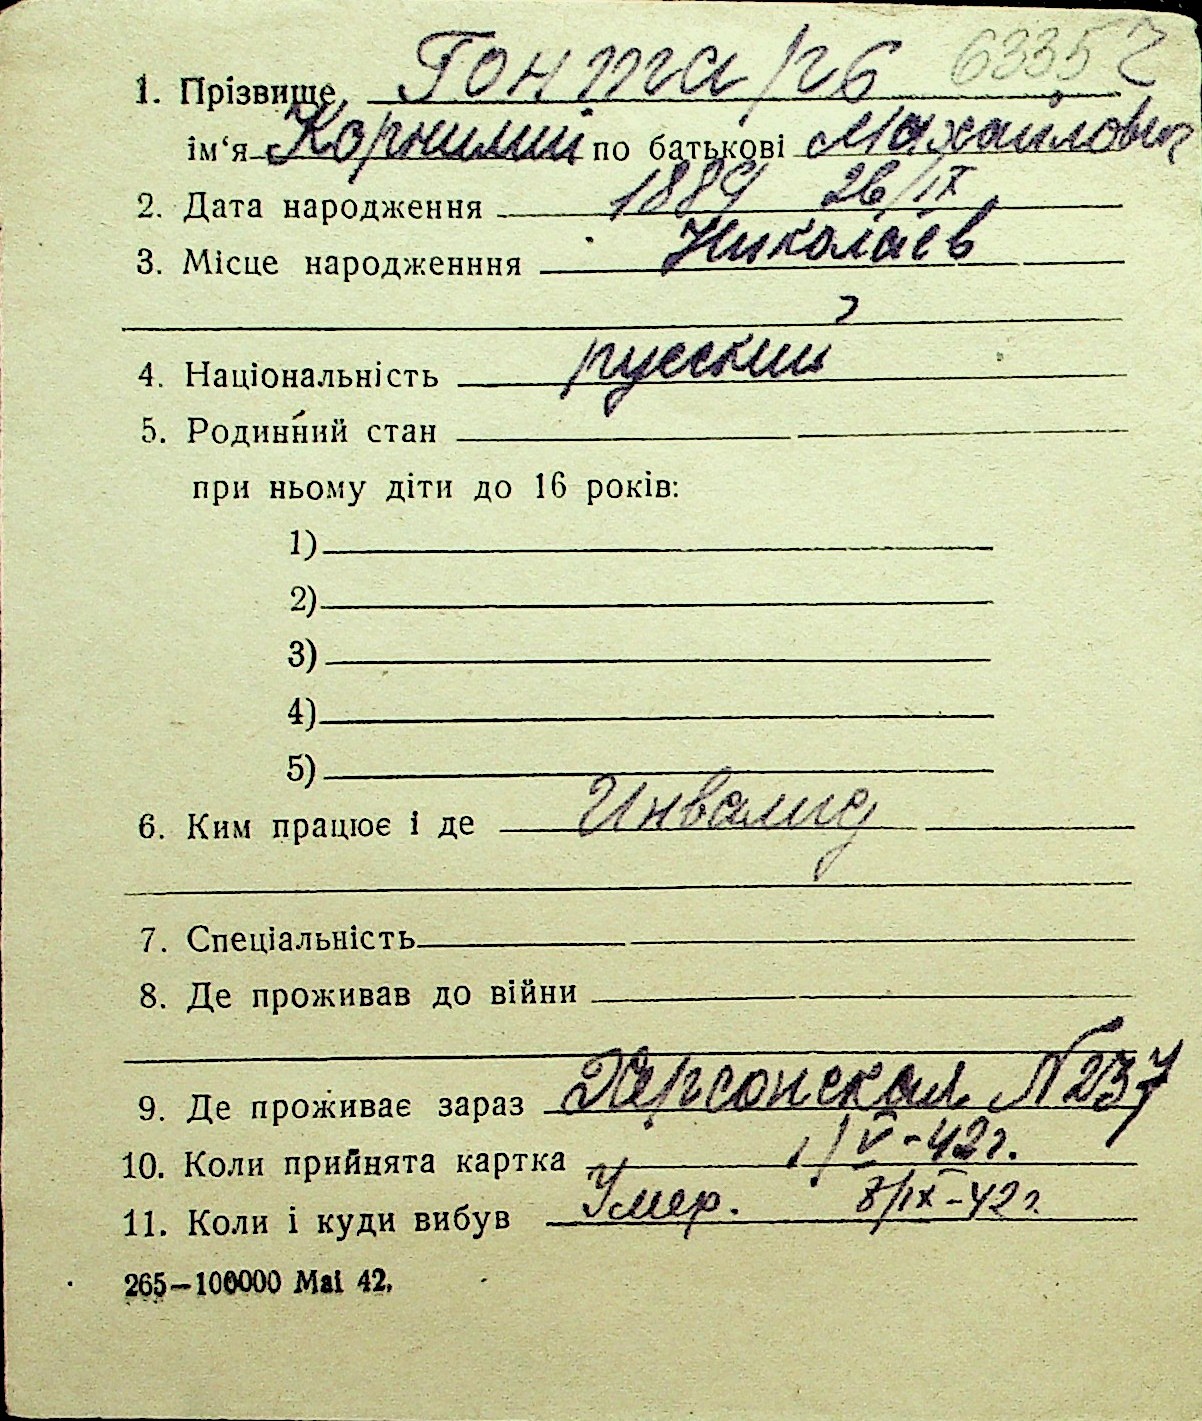 1. Прізвище Гонтарь 63357
ім‘я Корнилий по батькові Михайлович
2. Дата народження 1889 26/IX
3. Місце народженння Николаев
4. Національність русский
5. Родинний стан
при ньому діти до 16 років:
1)
2)
3)
4)
5)
6. Ким працює і де Инвалид
7. Спеціальність
8. Де проживав до війни
9. Де проживає зараз Херсонская N 237
10. Коли прийнята картка 1/V-42г.
11. Коли і куди вибув Умер. 8/IX-42г.
265—100000 Mai 42.